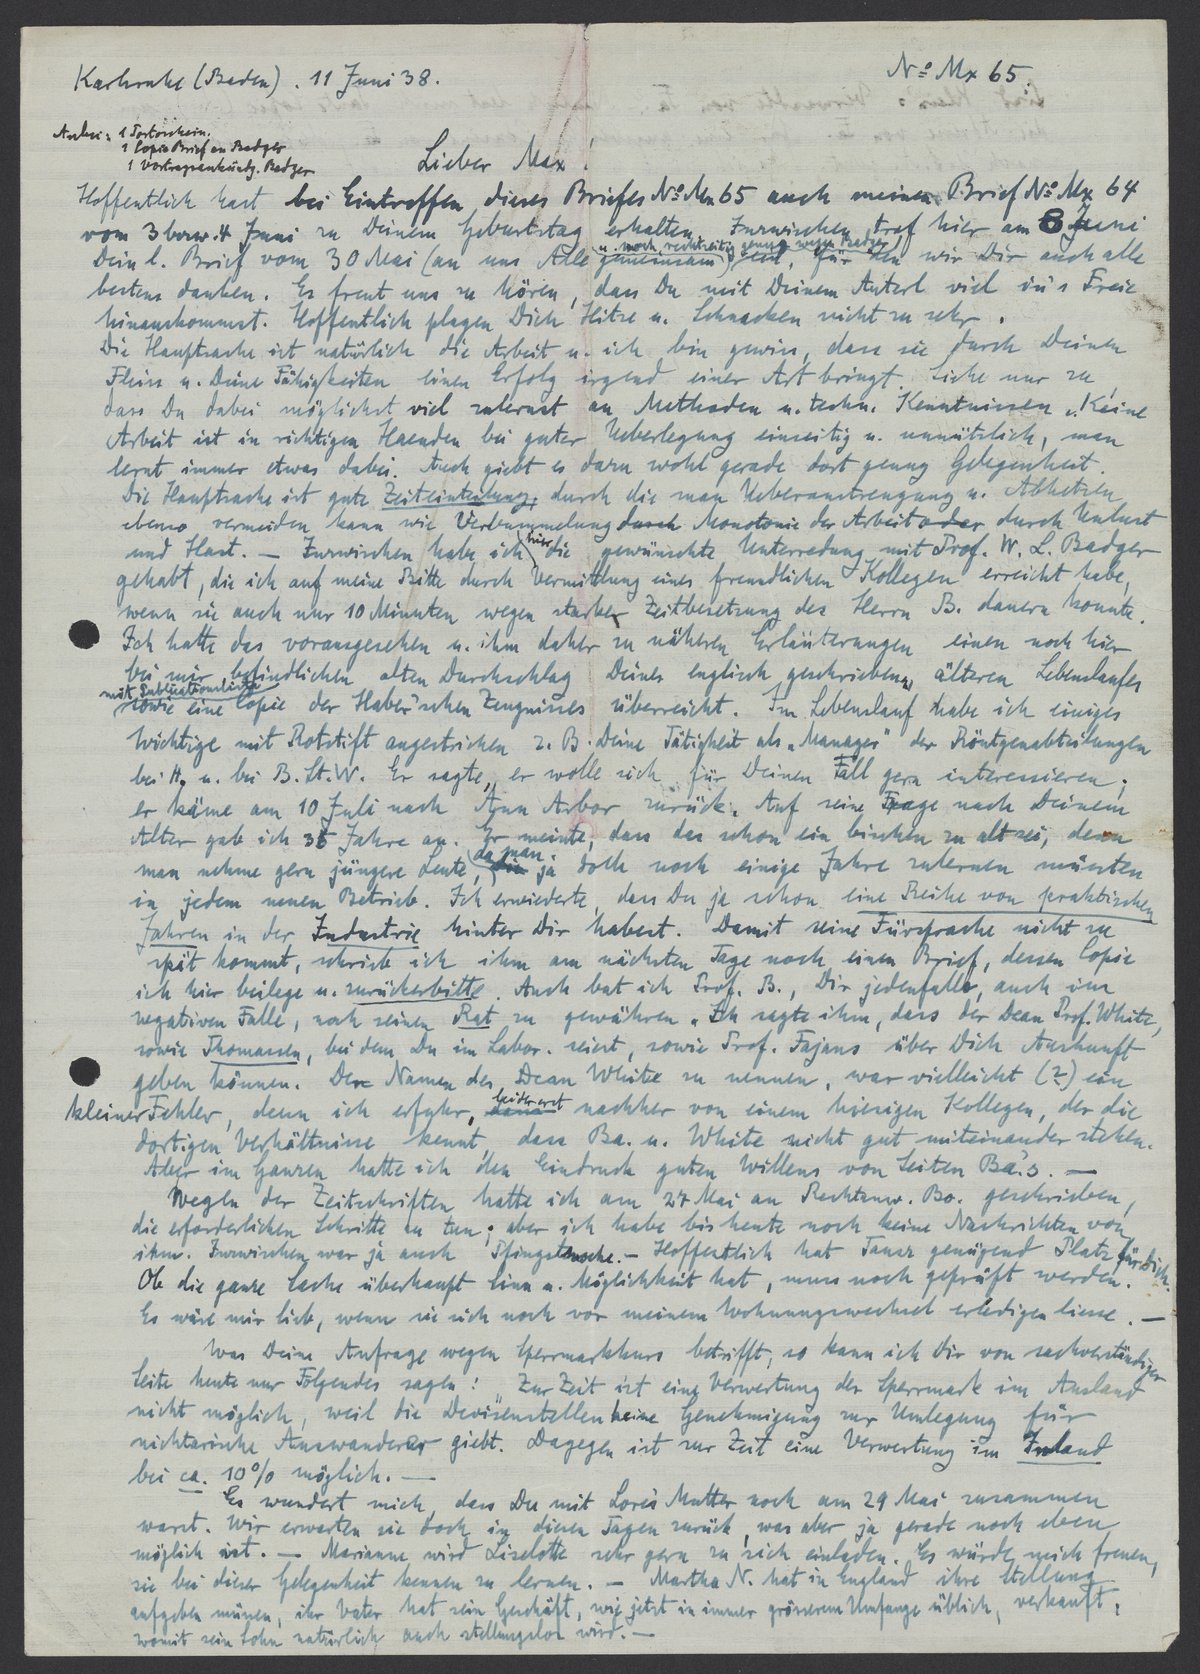 Karlsruhe (Baden). 11 Juni 38.
No Mx 65.
Anbei: 1 Portoschein.
1 Copie Brief an Badger
1 Vortragsankündg. Badger
Lieber Max!
Hoffentlich hast bei Eintreffen dieses Briefes No Mx 65 auch meinen Brief No Mx 64
vom 3 bezw. 4 Juni zu Deinem Geburtstag erhalten. Inzwischen traf hier am 8 Juni
u. noch rechtzeitig genug wegen Badger
Dein l. Brief vom 30 Mai (an uns Alle gemeinsam) ein, für den wir Dir auch alle
bestens danken. Es freut uns zu hören, dass Du mit Deinem Auterl viel in's Freie
hinauskommst. Hoffentlich plagen Dich Hitze u. Schnacken nicht zu sehr.
Die Hauptsache ist natürlich die Arbeit u. ich bin gewiss, dass sie durch Deinen
Fleiss u. Deine Fähigkeiten einen Erfolg irgend einer Art bringt. Siehe nur zu,
dass Du dabei möglichst viel zulernst an Methoden u. techn. Kenntnissen. Keine
Arbeit ist in richtigen Haenden bei guter Ueberlegung einseitig u. unnützlich, man
lernt immer etwas dabei. Auch giebt es dazu wohl gerade dort genug Gelegenheit.
Die Hauptsache ist gute Zeiteinteilung, durch die man Ueberanstrengung u. Abhetzen
ebenso vermeiden kann wie Verbummelung durch Monotonie der Arbeit oder durch Unlust
und Hast. — Inzwischen habe ich hier die gewünschte Unterredung mit Prof. W. L. Badger
gehabt, die ich auf meine Bitte durch Vermittlung eines freundlichen Kollegen erreicht habe,
wenn sie auch nur 10 Minuten wegen starker Zeitbesetzung des Herrn B. dauern konnte.
Ich hatte das vorausgesehen u. ihm daher zu näheren Erläuterungen einen noch hier
bei mir befindlichen alten Durchschlag Deines englisch geschriebenen älteren Lebenslaufes
mit Publicationsliste
sowie eine Copie des Haber'schen Zeugnisses überreicht. Im Lebenslauf habe ich einiges
Wichtige mit Rotstift angestrichen z. B. Deine Tätigkeit als „Manager" der Röntgenabteilungen
bei H. u. bei B. St. W. Er sagte, er wolle sich für Deinen Fall gern interessieren;
er käme am 10 Juli nach Ann Arbor zurück. Auf seine Frage nach Deinem
Alter gab ich 35 Jahre an. Er meinte, dass das schon ein bischen zu alt sei, denn
man nehme gern jüngere Leute, da man ja doch noch einige Jahre zulernen müssten
in jedem neuen Betrieb. Ich erwiederte, dass Du ja schon eine Reihe von praktischen
Jahren in der Industrie hinter Dir habest. Damit seine Fürsprache nicht zu
spät kommt, schrieb ich ihm am nächsten Tage noch einen Brief, dessen Copie
ich hier beilege u. zurückerbitte. Auch bat ich Prof. B., Dir jedenfalls, auch im
negativen Falle, noch seinen Rat zu gewähren. Ich sagte ihm, dass der Dean Prof. White,
sowie Thomassen, bei dem Du im Labor. seiest, sowie Prof. Fajans über Dich Auskunft
geben können. Den Namen des Dean White zu nennen, war vielleicht (?) ein
kleiner Fehler, denn ich erfuhr, leider erst nachher von einem hiesigen Kollegen, der die
dortigen Verhältnisse kennt, dass Ba. u. White nicht gut miteinander stehen.
Aber im Ganzen hatte ich den Eindruck guten Willens von Seiten Ba's. —
Wegen der Zeitschriften hatte ich am 27 Mai an Rechtanw. Bo. geschrieben,
die erforderlichen Schritte zu tun; aber ich habe bis heute noch keine Nachrichten von
ihm. Inzwischen war ja auch Pfingstwoche. — Hoffentlich hat Tanz genügend Platz für Dich.
Ob die ganze Sache überhaupt Sinn u. Möglichkeit hat, muss noch geprüft werden.
Es wäre mir lieb, wenn sie sich noch vor meinem Wohnungswechsel erledigen liesse. —
Was Deine Anfrage wegen Sperrmarkkurs betrifft, so kann ich Dir von sachverständiger
Seite heute nur Folgendes sagen: „Zur Zeit ist eine Verwertung der Sperrmark im Ausland
nicht möglich, weil die Devisenstellen keine Genehmigung zur Umlegung für
nichtarische Auswanderer giebt. Dagegen ist zur Zeit eine Verwertung im Inland
bei ca. 10% möglich. —
Es wundert mich, dass Du mit Lore's Mutter noch am 29 Mai zusammen
warst. Wir erwarten sie doch in diesen Tagen zurück, was aber ja gerade noch eben
möglich ist. — Marianne wird Liselotte sehr gern zu sich einladen. Es würde mich freuen,
sie bei dieser Gelegenheit kennen zu lernen. — Martha N. hat in England ihre Stellung
aufgeben müssen, ihr Vater hat sein Geschäft, wie jetzt in immer grösserem Umfange üblich, verkauft,
womit sein Sohn natürlich auch stellungslos wird. —